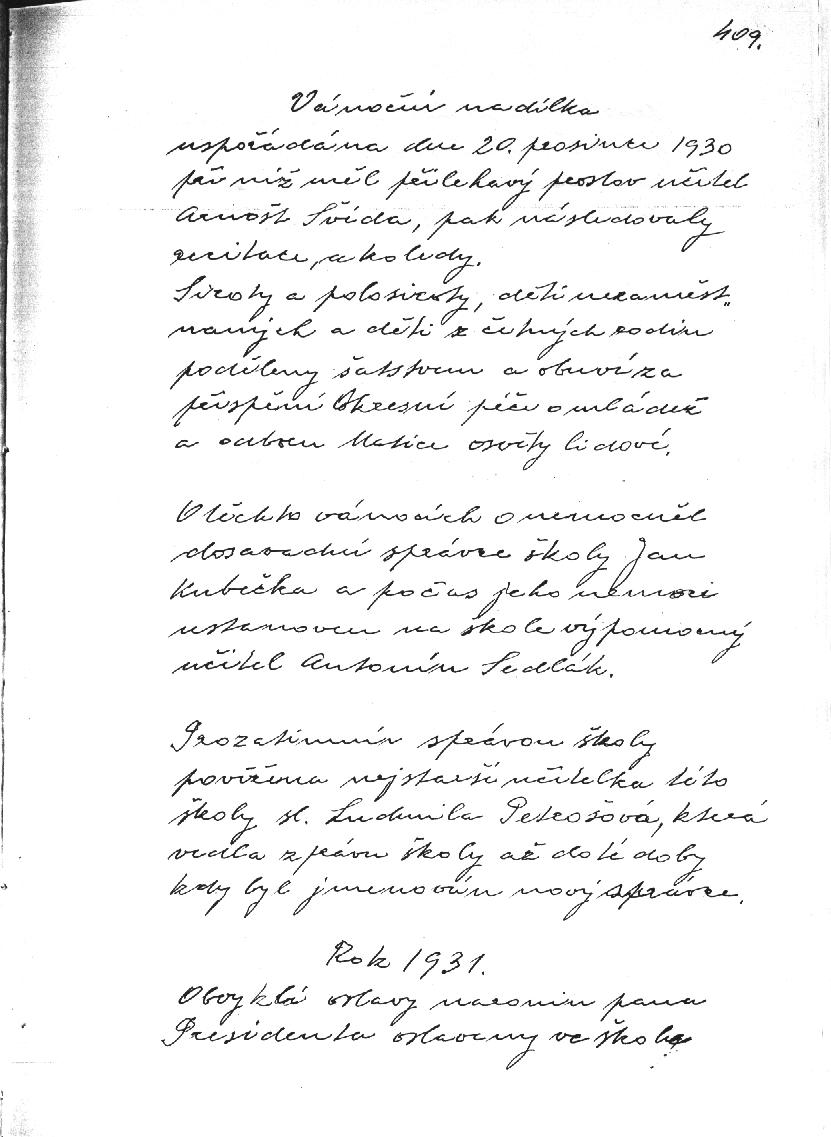 409.
Vánoční nadílka
uspořádána dne 20. prosince 1930
při níž měl přílehavý proslov učitel
Arnošt Svída, pak následovaly
recitace, a koledy.
Siroty a polosiroty, děti nezaměst„
naných a děti z četných rodin
poděleny šatstvem a obuví za
přispění Okresní péče o mládež
a odboru Matice osvěty lidové.
O těchto vánocích onemocněl
dosavadní správce školy Jan
Kubečka a počas jeho nemoci
ustanoven na škole výpomocný
učitel Antonín Sedlák.
Prozatimním správou školy
pověřena nejstarší učitelka této
školy sl. Ludmila Petrošová, která
vedla zprávu školy až do té doby
kdy byl jmenován nový správce.
Rok 1931.
Obvyklá oslavy narosnin pana
Presidenta oslaveny ve škole